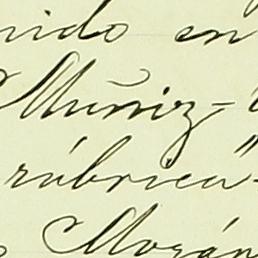 nido en
Muñiz=
rúbrica"
Morán